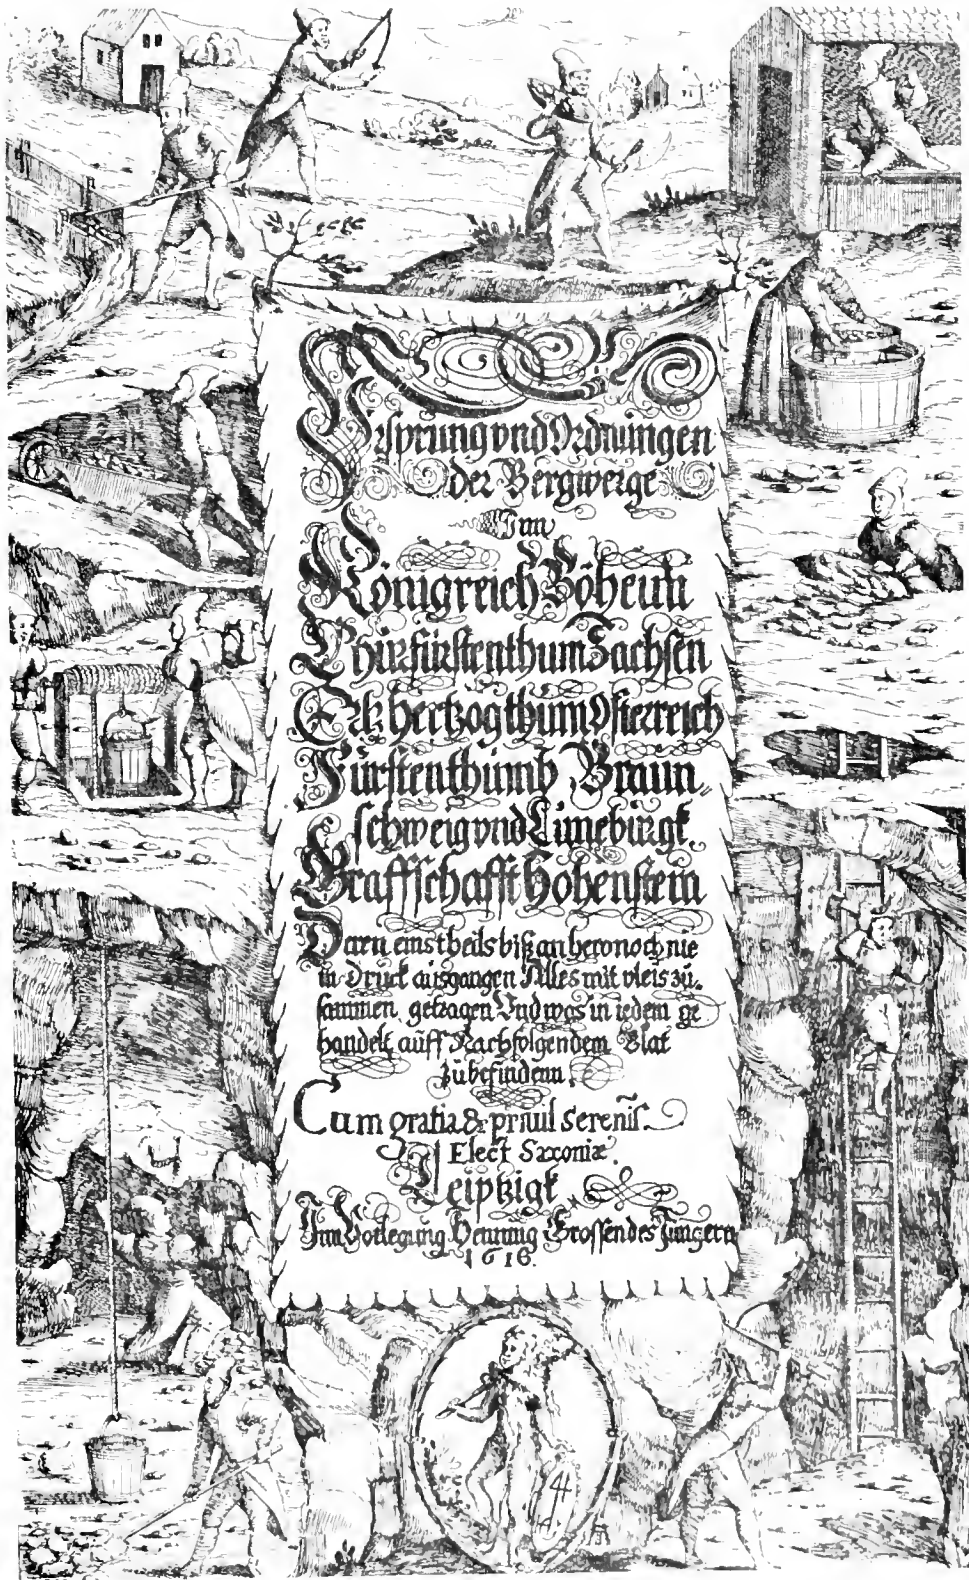 Ursprung vnd Ordnungen
der Bergwerge
Im
Königreich Böheim
Chürfürstenthum Sachsen
Ertzhertzogthum Osterreich
Fürstenthumb Braun⸗
schweig vnd Lüneburgk
Graffschafft Hohenstein
Darn einstheils biß an hero noch nie
in Druck ausgangen Alles mit vleis zu⸗
sammen getragen Vnd was in iedem ge
handelt auff Nachfolgendem Blat
zu befindenn
Cum gratia & priuil Sereniß.
Elect Saxoniæ.
Leiptzigk
Inn Vorlegung Henning Grossen des Jungern
1616.